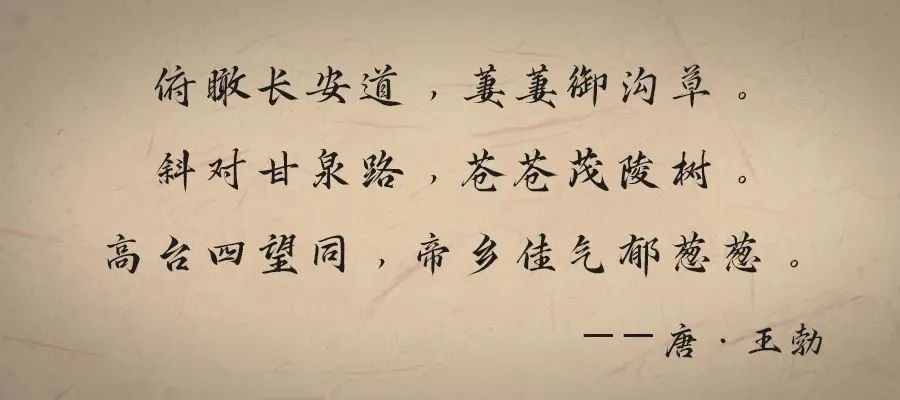 俯瞰长安道，萋萋御沟草。
斜对甘泉路，苍苍茂陵树。
高台四望同，帝乡佳气郁葱葱。
——唐·王勃